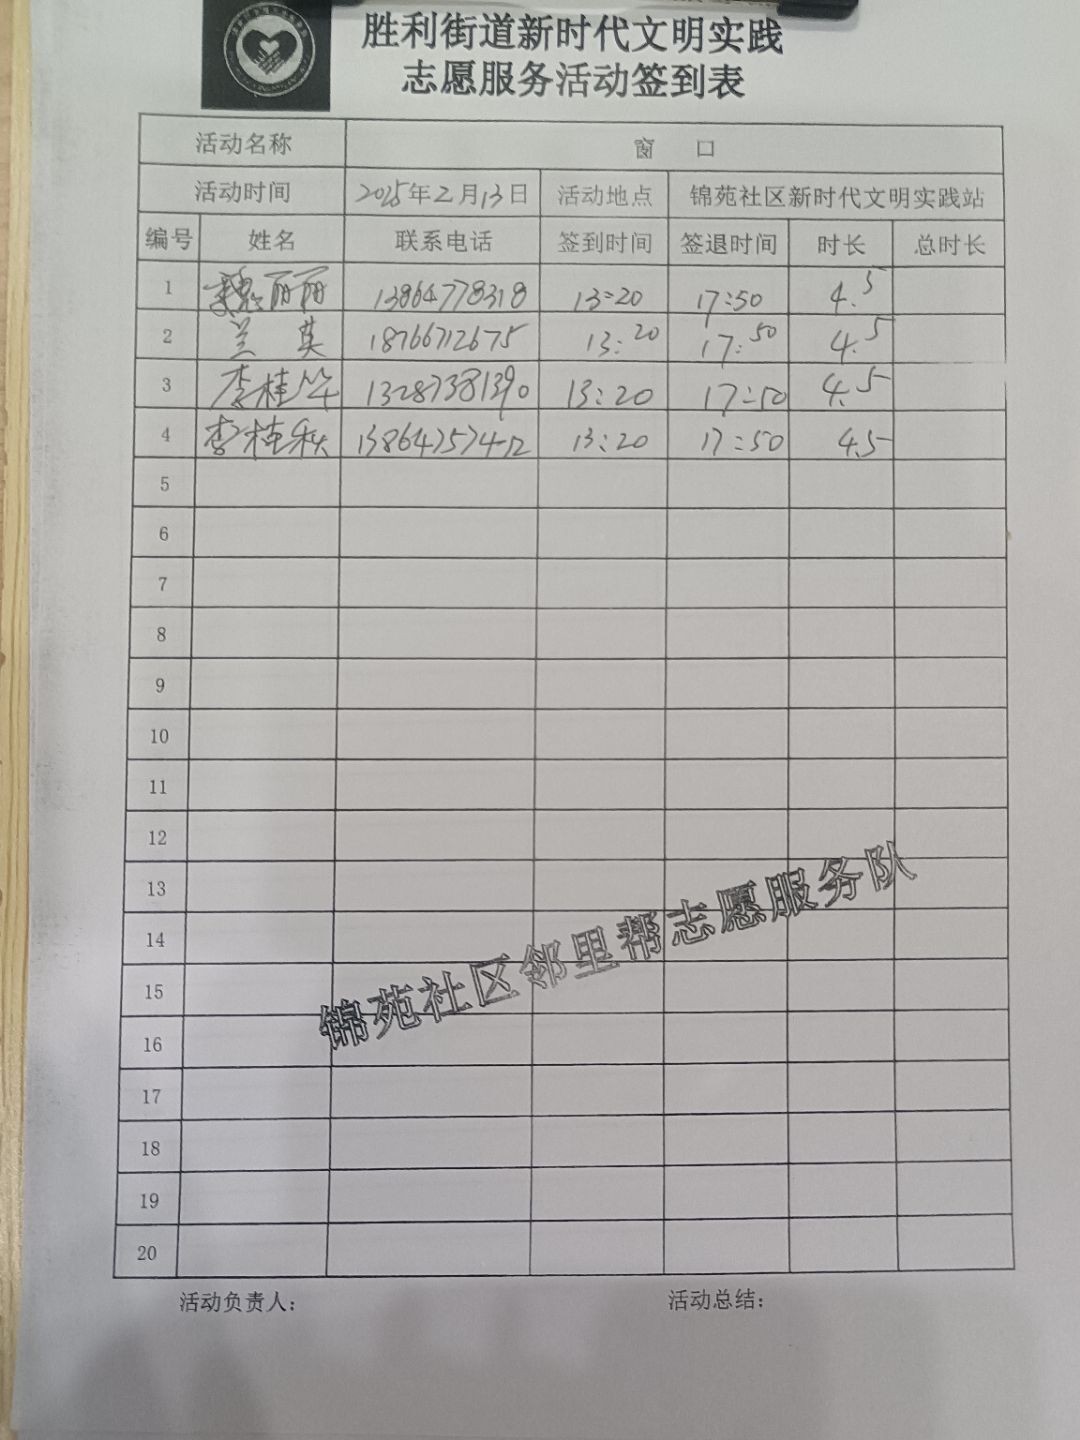 胜利街道新时代文明实践
志愿服务活动签到表
活动名称 窗 口
活动时间 2025年2月13日 活动地点 锦苑社区新时代文明实践站
编号 姓名 联系电话 签到时间 签退时间 时长 总时长
1 魏丽丽 13864778318 13:20 17:50 4.5
2 兰 英 18766712675 13:20 17:50 4.5
3 李桂华 13287381390 13:20 17:50 4.5
4 李桂秋 13864757412 13:20 17:50 4.5
5
6
7
8
9
10
11
12
13
14
15
16
17
18
19
20
锦苑社区邻里帮志愿服务队
活动负责人： 活动总结：